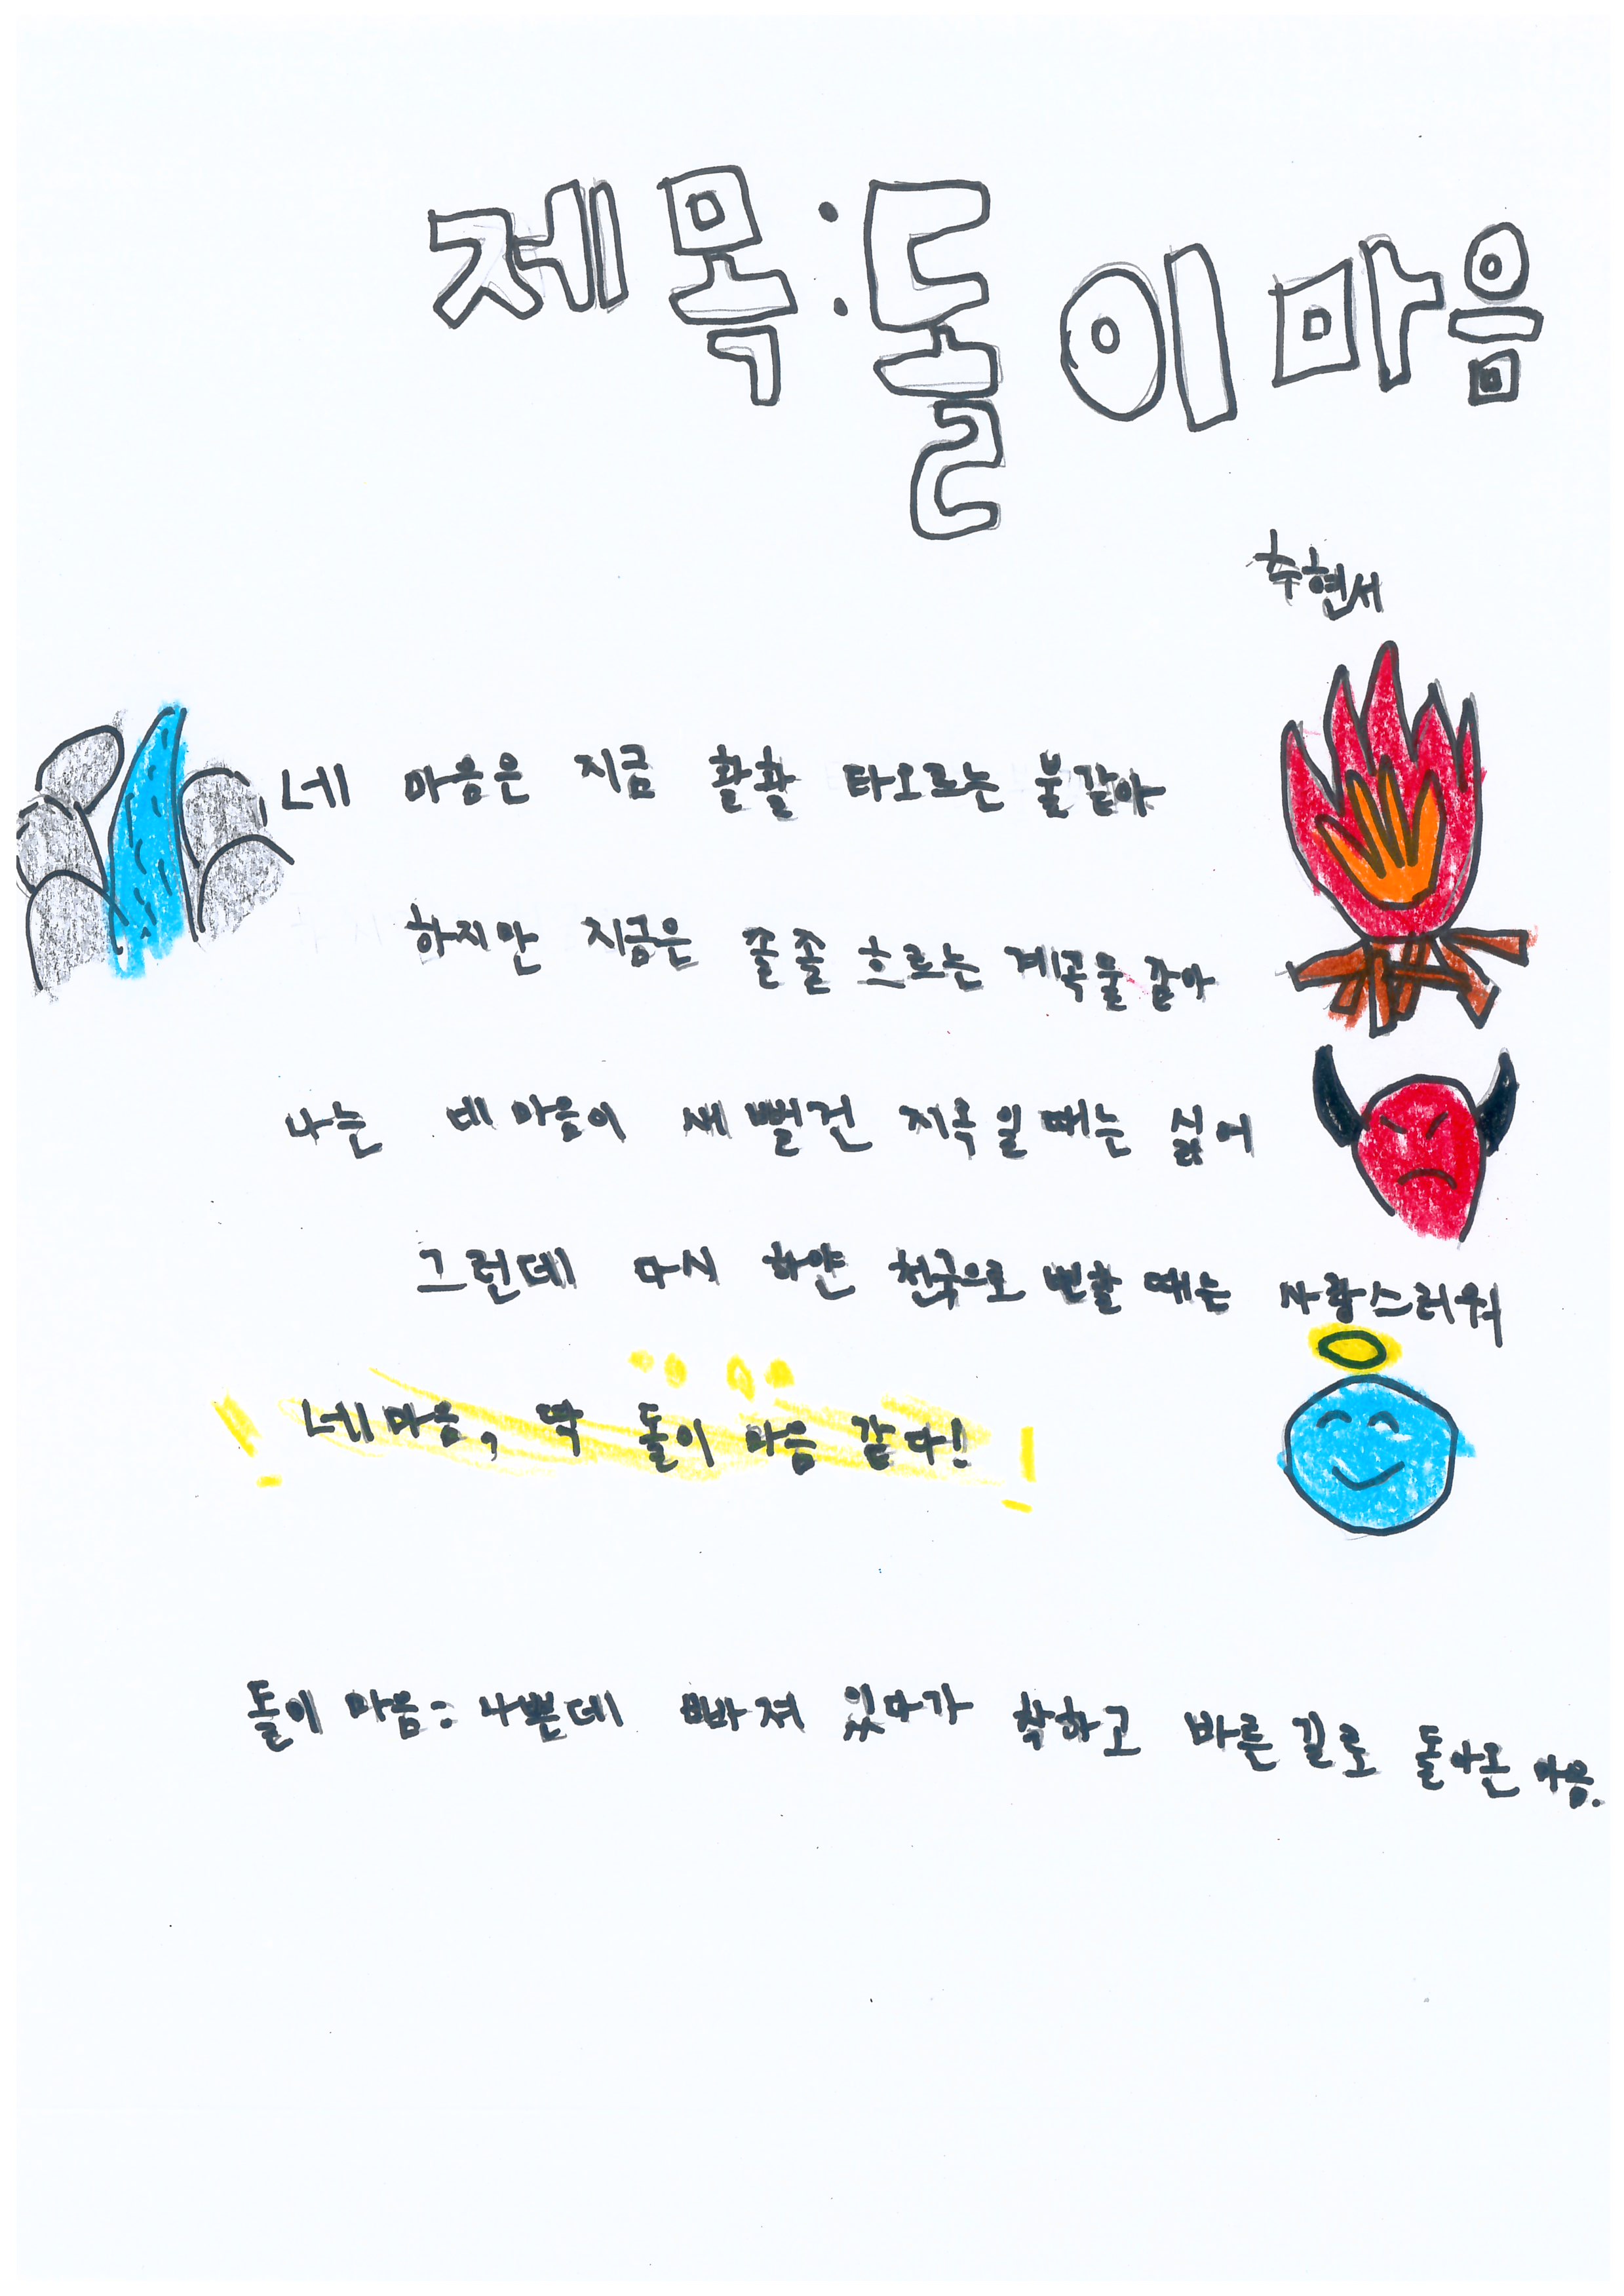 제목:돌이마음
추현서
네 마음은 지금 활활 타오르는 불같아
하지만 지금은 졸졸 흐르는 계곡물 같아
나는 네마음이 새뻘건 지옥일때는 싫어
그런데 다시 하얀 천국으로 변할 때는 사랑스러워
네마음, 딱 돌이 마음 같다!
돌이 마음: 나쁜데 빠져 있다가 착하고 바른길로 돌아온 마음.